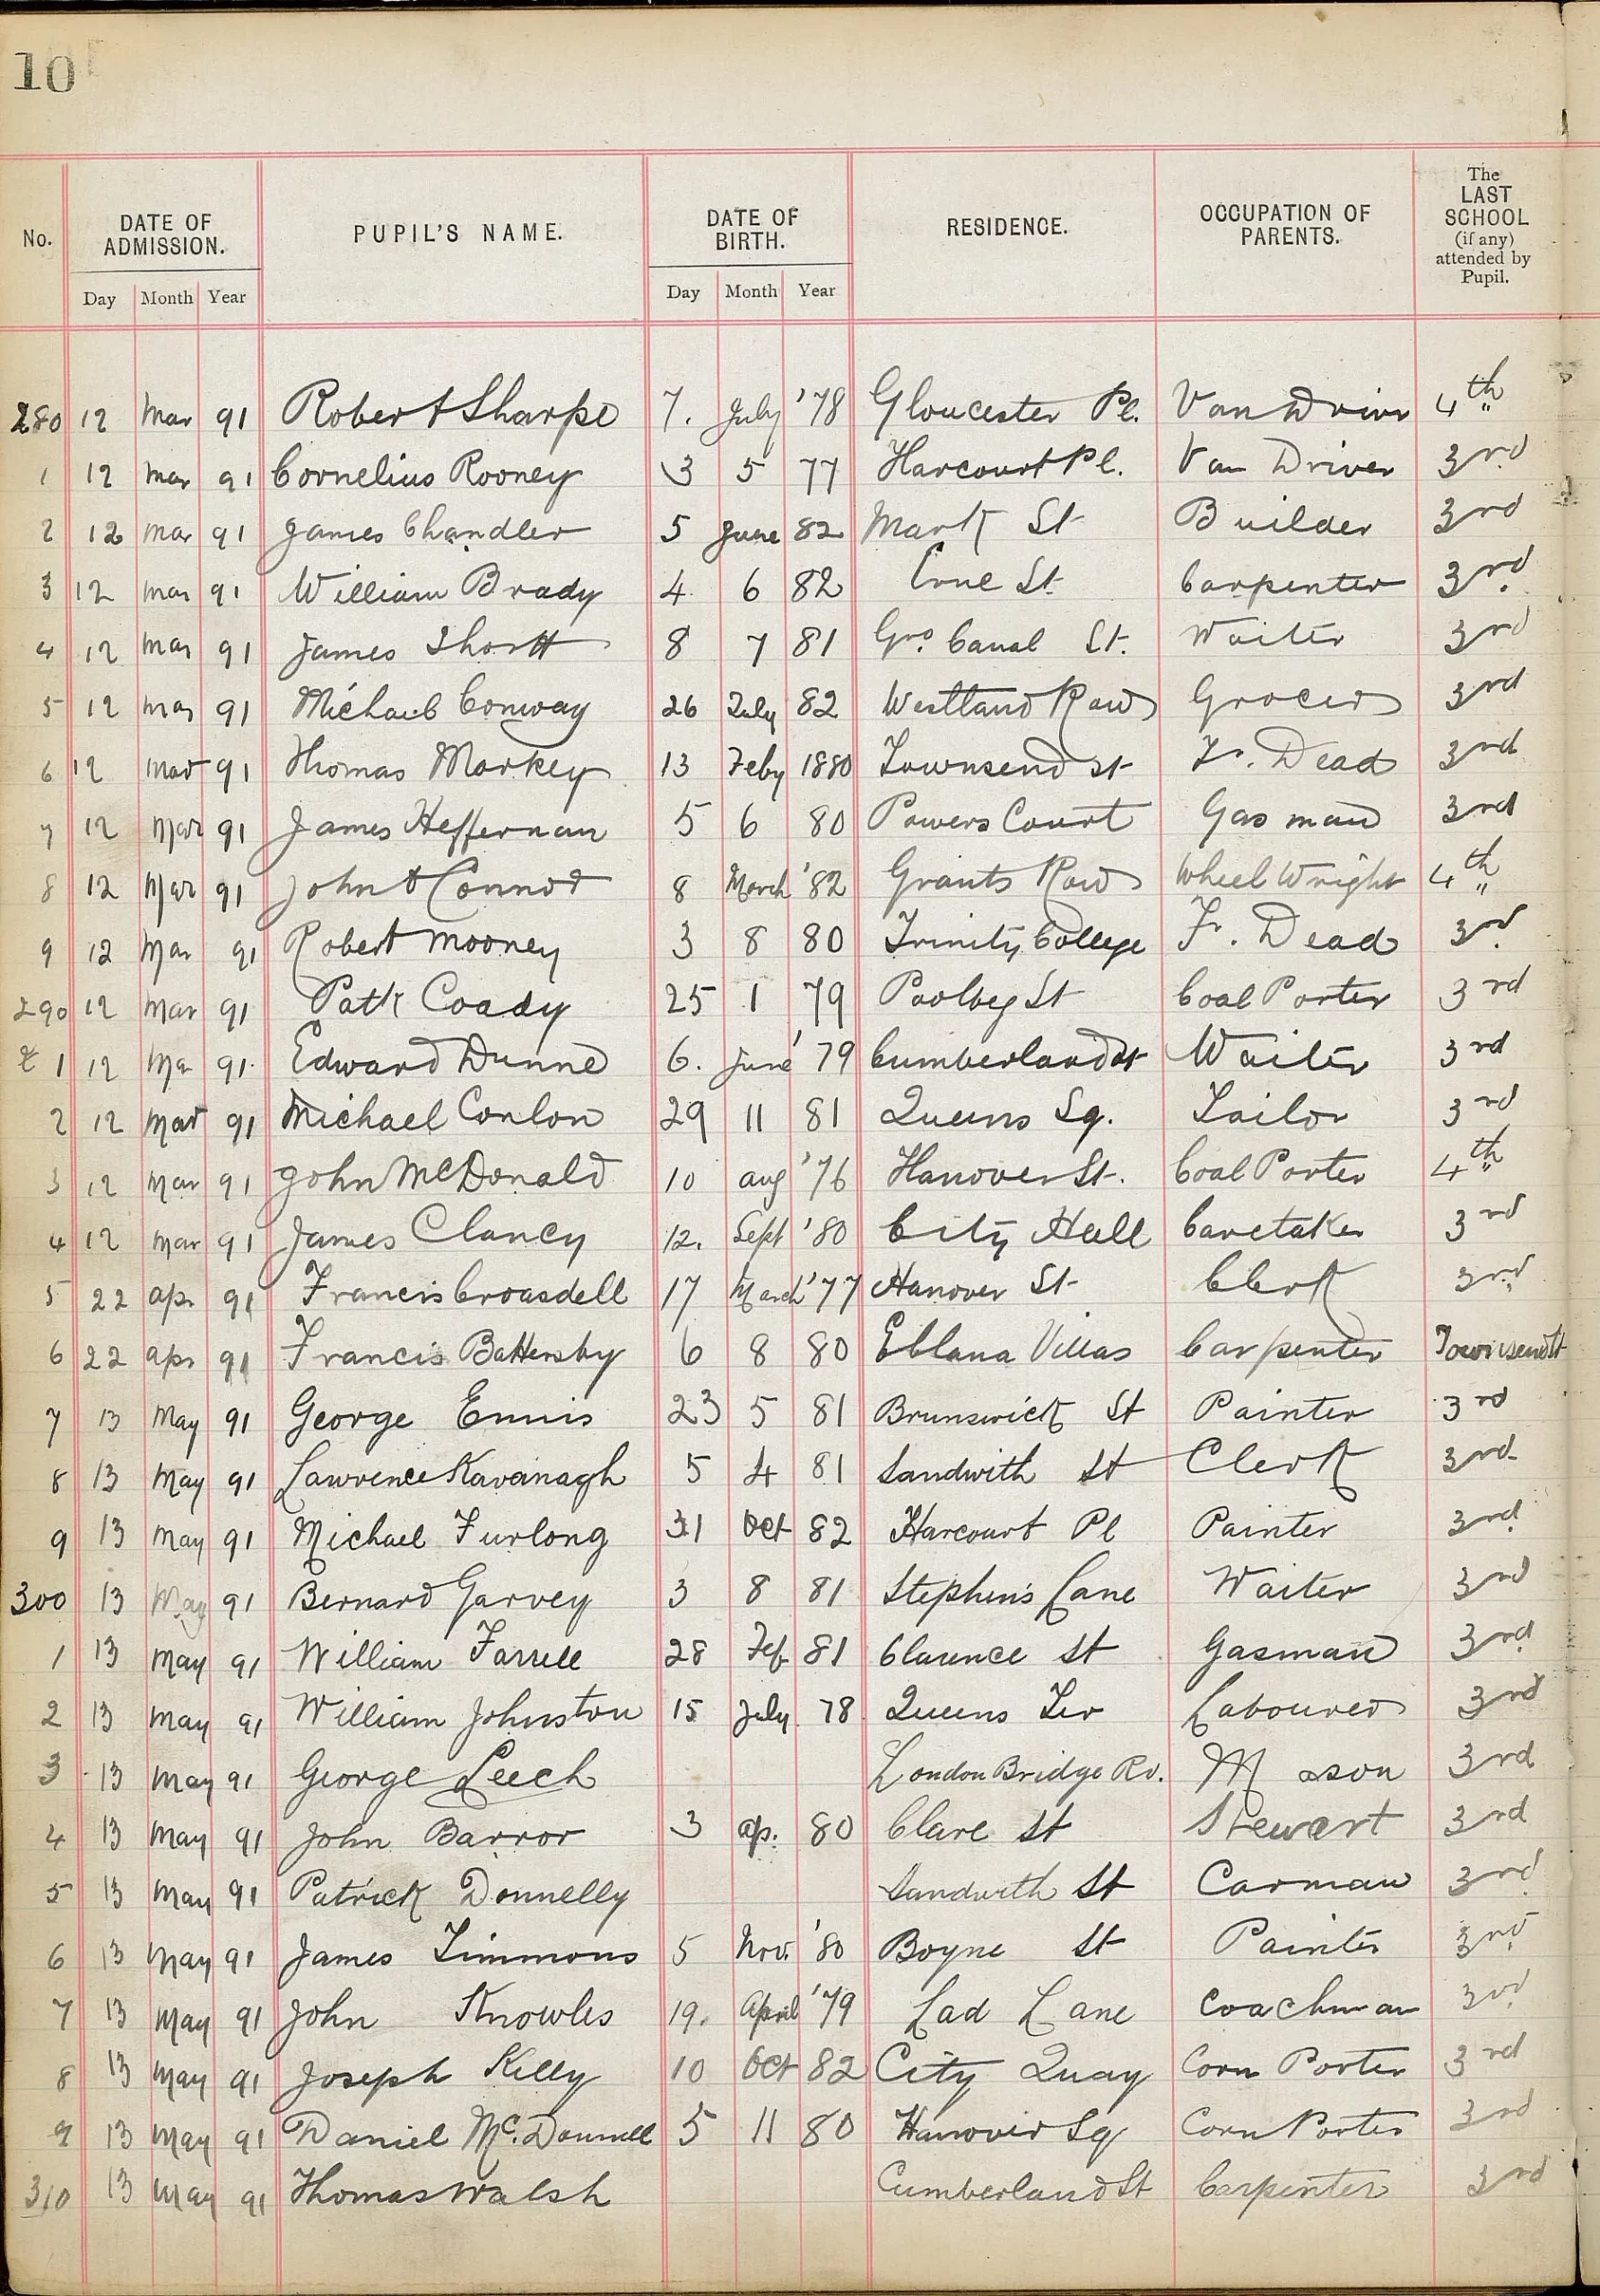 10
No. DATE OF ADMISSION. PUPIL'S NAME. DATE OF BIRTH. RESIDENCE. OCCUPATION OF PARENTS. The LAST SCHOOL (if any) attended by Pupil.
Day Month Year Day Month Year
280 12 Mar 91 Robert Sharpe 7. July '78 Gloucester Pl. Van Driver 4th "
1 12 Mar 91 Cornelius Rooney 3 5 77 Harcourt Pl. Van Driver 3rd
2 12 Mar 91 James Chandler 5 June 82 Mark St Builder 3rd
3 12 Mar 91 William Brady 4 6 82 Erne St. Carpenter 3rd
4 12 Mar 91 James Shortt 8 7 81 Grd. Canal St. Waiter 3rd
5 12 Mar 91 Michael Conway 26 July 82 Westland Row Grocer 3rd
6 12 Mar 91 Thomas Markey 13 Feby 1880 Townsend St Fr. Dead 3rd
7 12 Mar 91 James Heffernan 5 6 80 Powers Court Gas man 3rd
8 12 Mar 91 John O Connor 8 March '82 Grants Row Wheel Wright 4th "
9 12 Mar 91 Robert Mooney 3 8 80 Trinity College Fr. Dead 3rd
290 12 Mar 91 Patk Coady 25 1 79 Poolbeg St Coal Porter 3rd
1 12 Mar 91 Edward Dunne 6. June '79 Cumberland St Waiter 3rd
2 12 Mar 91 Michael Conlon 29 11 81 Queens Sq. Tailor 3rd
3 12 Mar 91 John McDonald 10 Aug '76 Hanover St. Coal Porter 4th "
4 12 Mar 91 James Clancy 12. Sept '80 City Hall Caretaker 3rd
5 22 Apr 91 Francis Croasdell 17 March '77 Hanover St Clerk 3rd
6 22 Apr 91 Francis Battersby 6 8 80 Eblana Villas Carpenter Townsend St
7 13 May 91 George Ennis 23 5 81 Brunswick St Painter 3rd
8 13 May 91 Lawrence Kavanagh 5 4 81 Sandwith St Clerk 3rd
9 13 May 91 Michael Furlong 31 Oct 82 Harcourt Pl Painter 3rd
300 13 May 91 Bernard Garvey 3 8 81 Stephen's Lane Waiter 3rd
1 13 May 91 William Farrell 28 Feb 81 Clarence St Gasman 3rd
2 13 May 91 William Johnston 15 July 78 Queens Ter Labourer 3rd
3 13 May 91 George Leech London Bridge Rd. Mason 3rd
4 13 May 91 John Barror 3 Ap. 80 Clare St Stewart 3rd
5 13 May 91 Patrick Donnelly Sandwith St Carman 3rd
6 13 May 91 James Timmons 5 Nov. '80 Boyne St Painter 3rd
7 13 May 91 John Knowles 19. April '79 Lad Lane Coachman 3rd
8 13 May 91 Joseph Kelly 10 Oct 82 City Quay Corn Porter 3rd
9 13 May 91 Daniel Mc.Donnell 5 11 80 Hanover Sq Corn Porter 3rd
310 13 May 91 Thomas Walsh Cumberland St Carpenter 3rd